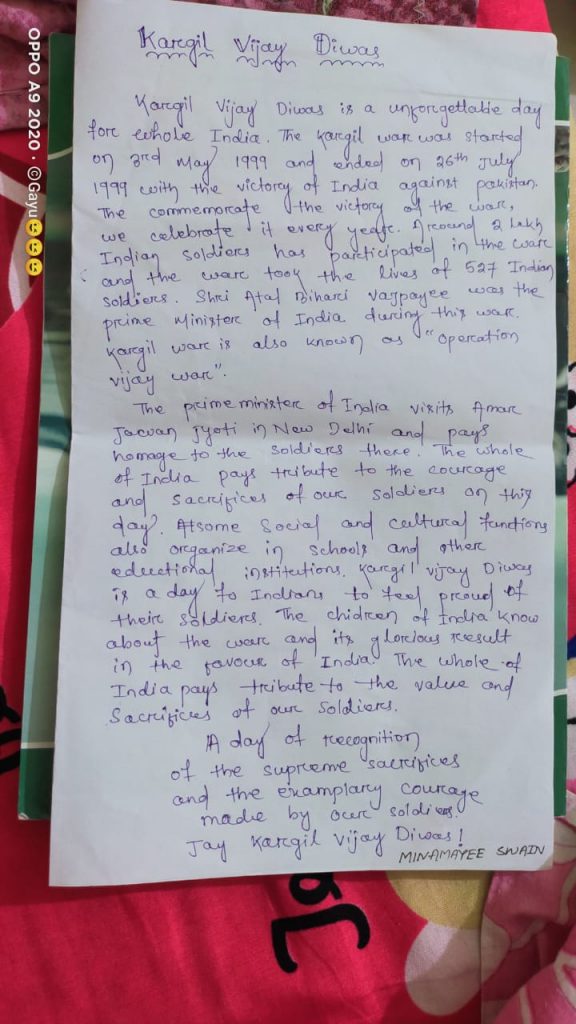 Kargil Vijay Diwas
Kargil Vijay Diwas is a unforgettable day
for whole India. The Kargil war was started
on 3rd May 1999 and ended on 26th July
1999 with the victory of India against pakistan.
The commemorate the victory of the war,
we celebrate it every year. Around 2 Lakh
Indian soldiers has participated in the war
and the war took the lives of 527 Indian
soldiers. Shri Atal Bihari Vajpayee was the
prime Minister of India during this war.
Kargil war is also known as "Operation
vijay war".
The prime minister of India visits Amar
Jawan Jyoti in New Delhi and pays
homage to the soldiers there. The whole
of India pays tribute to the courage
and sacrifices of our soldiers on this
day. Atsome Social and cultural functions
also organize in schools and other
eductional institutions. Kargil vijay Diwas
is a day to Indians to feel proud of
their soldiers. The chidren of India know
about the war and its glorious result
in the favour of India. The whole of
India pays tribute to the value and
Sacrifices of our Soldiers.
A day of recognition
of the supreme sacrifices
and the examplary courage
made by our soldiers.
Jay Kargil Vijay Diwas!
MINAMAYEE SWAIN
OPPO A9 2020 · @Gayu😊😊😊